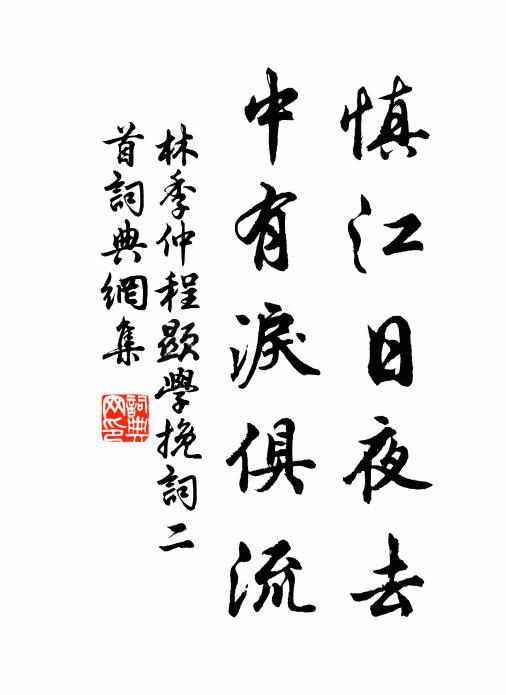 慎江日夜去
中有淚俱流
林季仲程顯學挽詞二
首詞典網集
詞典
网印